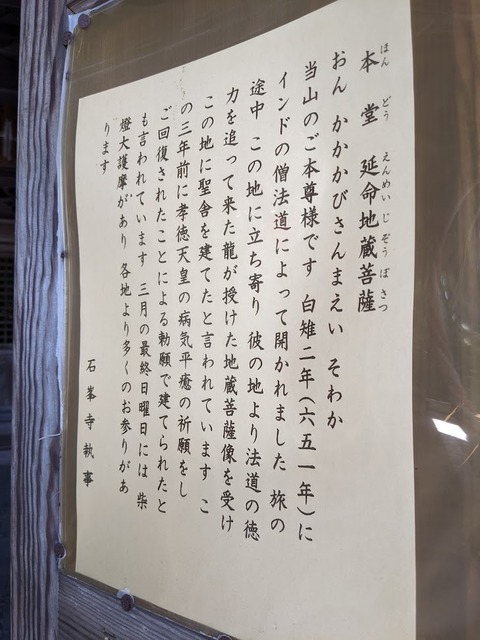 本堂 延命地蔵菩薩
ほん どう えんめいじぞうぼさつ
おん かかかびさんまえい そわか
当山のご本尊様です 白雉二年(六五一年)に
インドの僧法道によって開かれました 旅の
途中 この地に立ち寄り 彼の地より法道の徳
力を追って来た龍が授けた地蔵菩薩像を受け
この地に聖舎を建てたと言われています こ
の三年前に孝徳天皇の病気平癒の祈願をし
ご回復されたことによる勅願で建てられたと
も言われています 三月の最終日曜日には 柴
燈大護摩があり 各地より多くのお参りがあ
ります
石峯寺執事